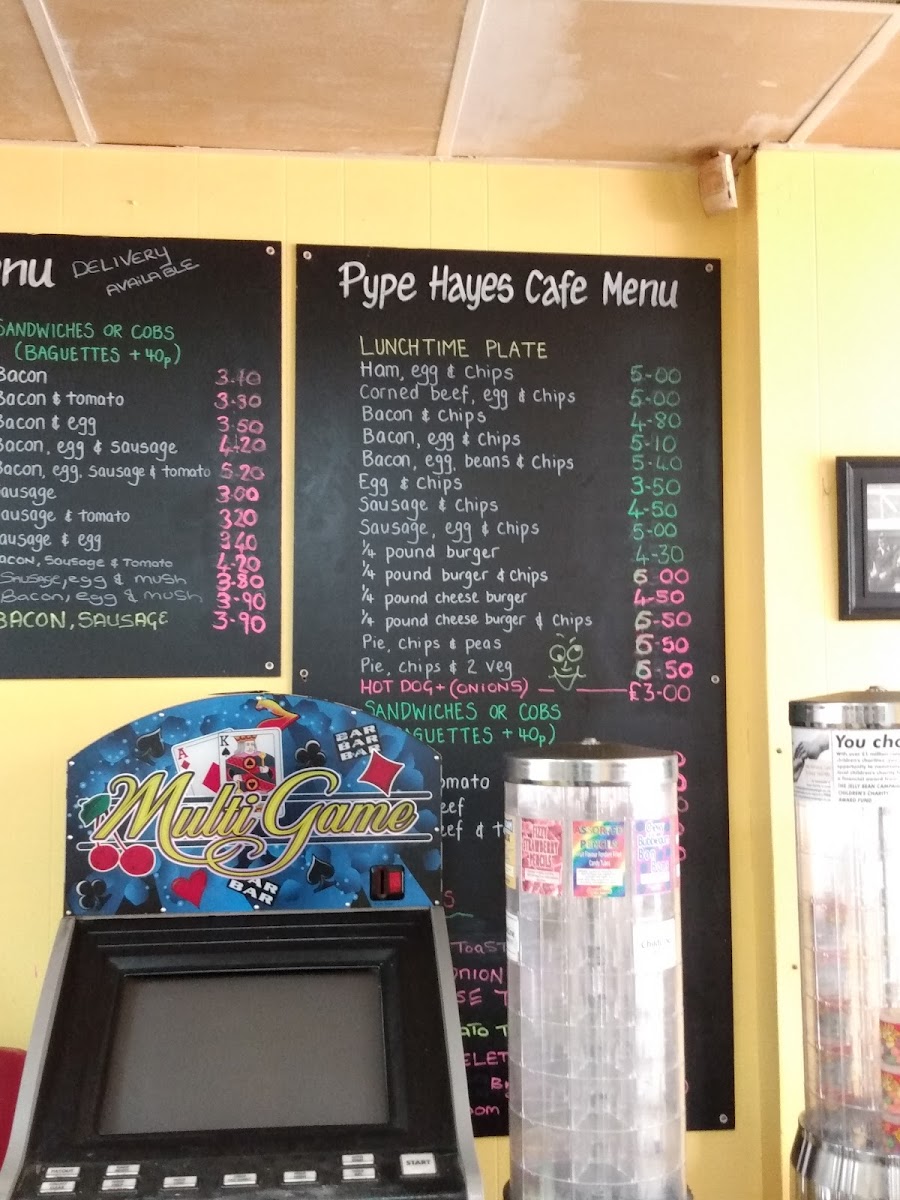 nu DELIVERY
AVAILABLE
SANDWICHES OR COBS
(BAGUETTES + 40p)
Bacon 3-10
Bacon & tomato 3-30
Bacon & egg 3-50
Bacon, egg & sausage 4-20
Bacon, egg, sausage & tomato 5-20
ausage 3-00
ausage & tomato 3-20
ausage & egg 3-40
acon, Sausage & Tomato 4-20
Sausage, egg & mush 3-80
Bacon, egg & mush 3-90
BACON, SAUSAGE 3-90
Pype Hayes Cafe Menu
LUNCHTIME PLATE
Ham, egg & chips 5-00
Corned beef, egg & chips 5-00
Bacon & chips 4-80
Bacon, egg & chips 5-10
Bacon, egg, beans & chips 5-40
Egg & chips 3-50
Sausage & chips 4-50
Sausage, egg & chips 5-00
1/4 pound burger 4-30
1/4 pound burger & chips 6-00
1/4 pound cheese burger 4-50
1/4 pound cheese burger & chips 6-50
Pie, chips & peas 6-50
Pie, chips & 2 veg 6-50
HOT DOG + (ONIONS) £3-00
SANDWICHES OR COBS
AGUETTES + 40p)
omato
eef
eef & t
S
TOAST
ONION
SE T
ATO T
ELET
oom
A K
BAR
BAR
BAR
Multi Game
BAR
BAR
START
FIZZY
STRAWBERRY
PENCILS
ASSORTED
PENCILS
You cho
THE JELLY BEAN CAMPAIGN
CHILDREN'S CHARITY
AWARD FUND